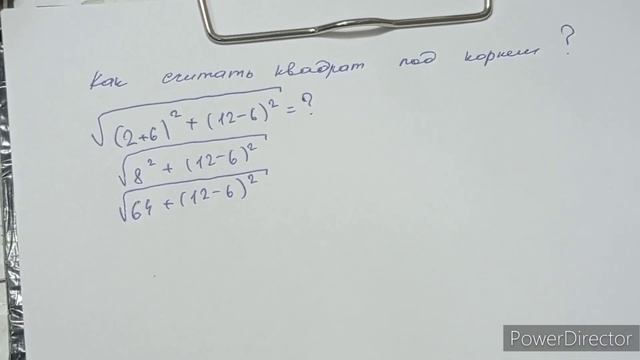 Как считать квадрат под корнем ?
√(2+6)² + (12-6)² = ?
√8² + (12-6)²
√64 + (12-6)²
PowerDirector